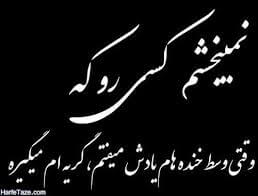 نمیبخشم کسی رو که
وقتی وسط خنده هام یادش میفتم، گریه ام میگیره
HarfeTaze.com